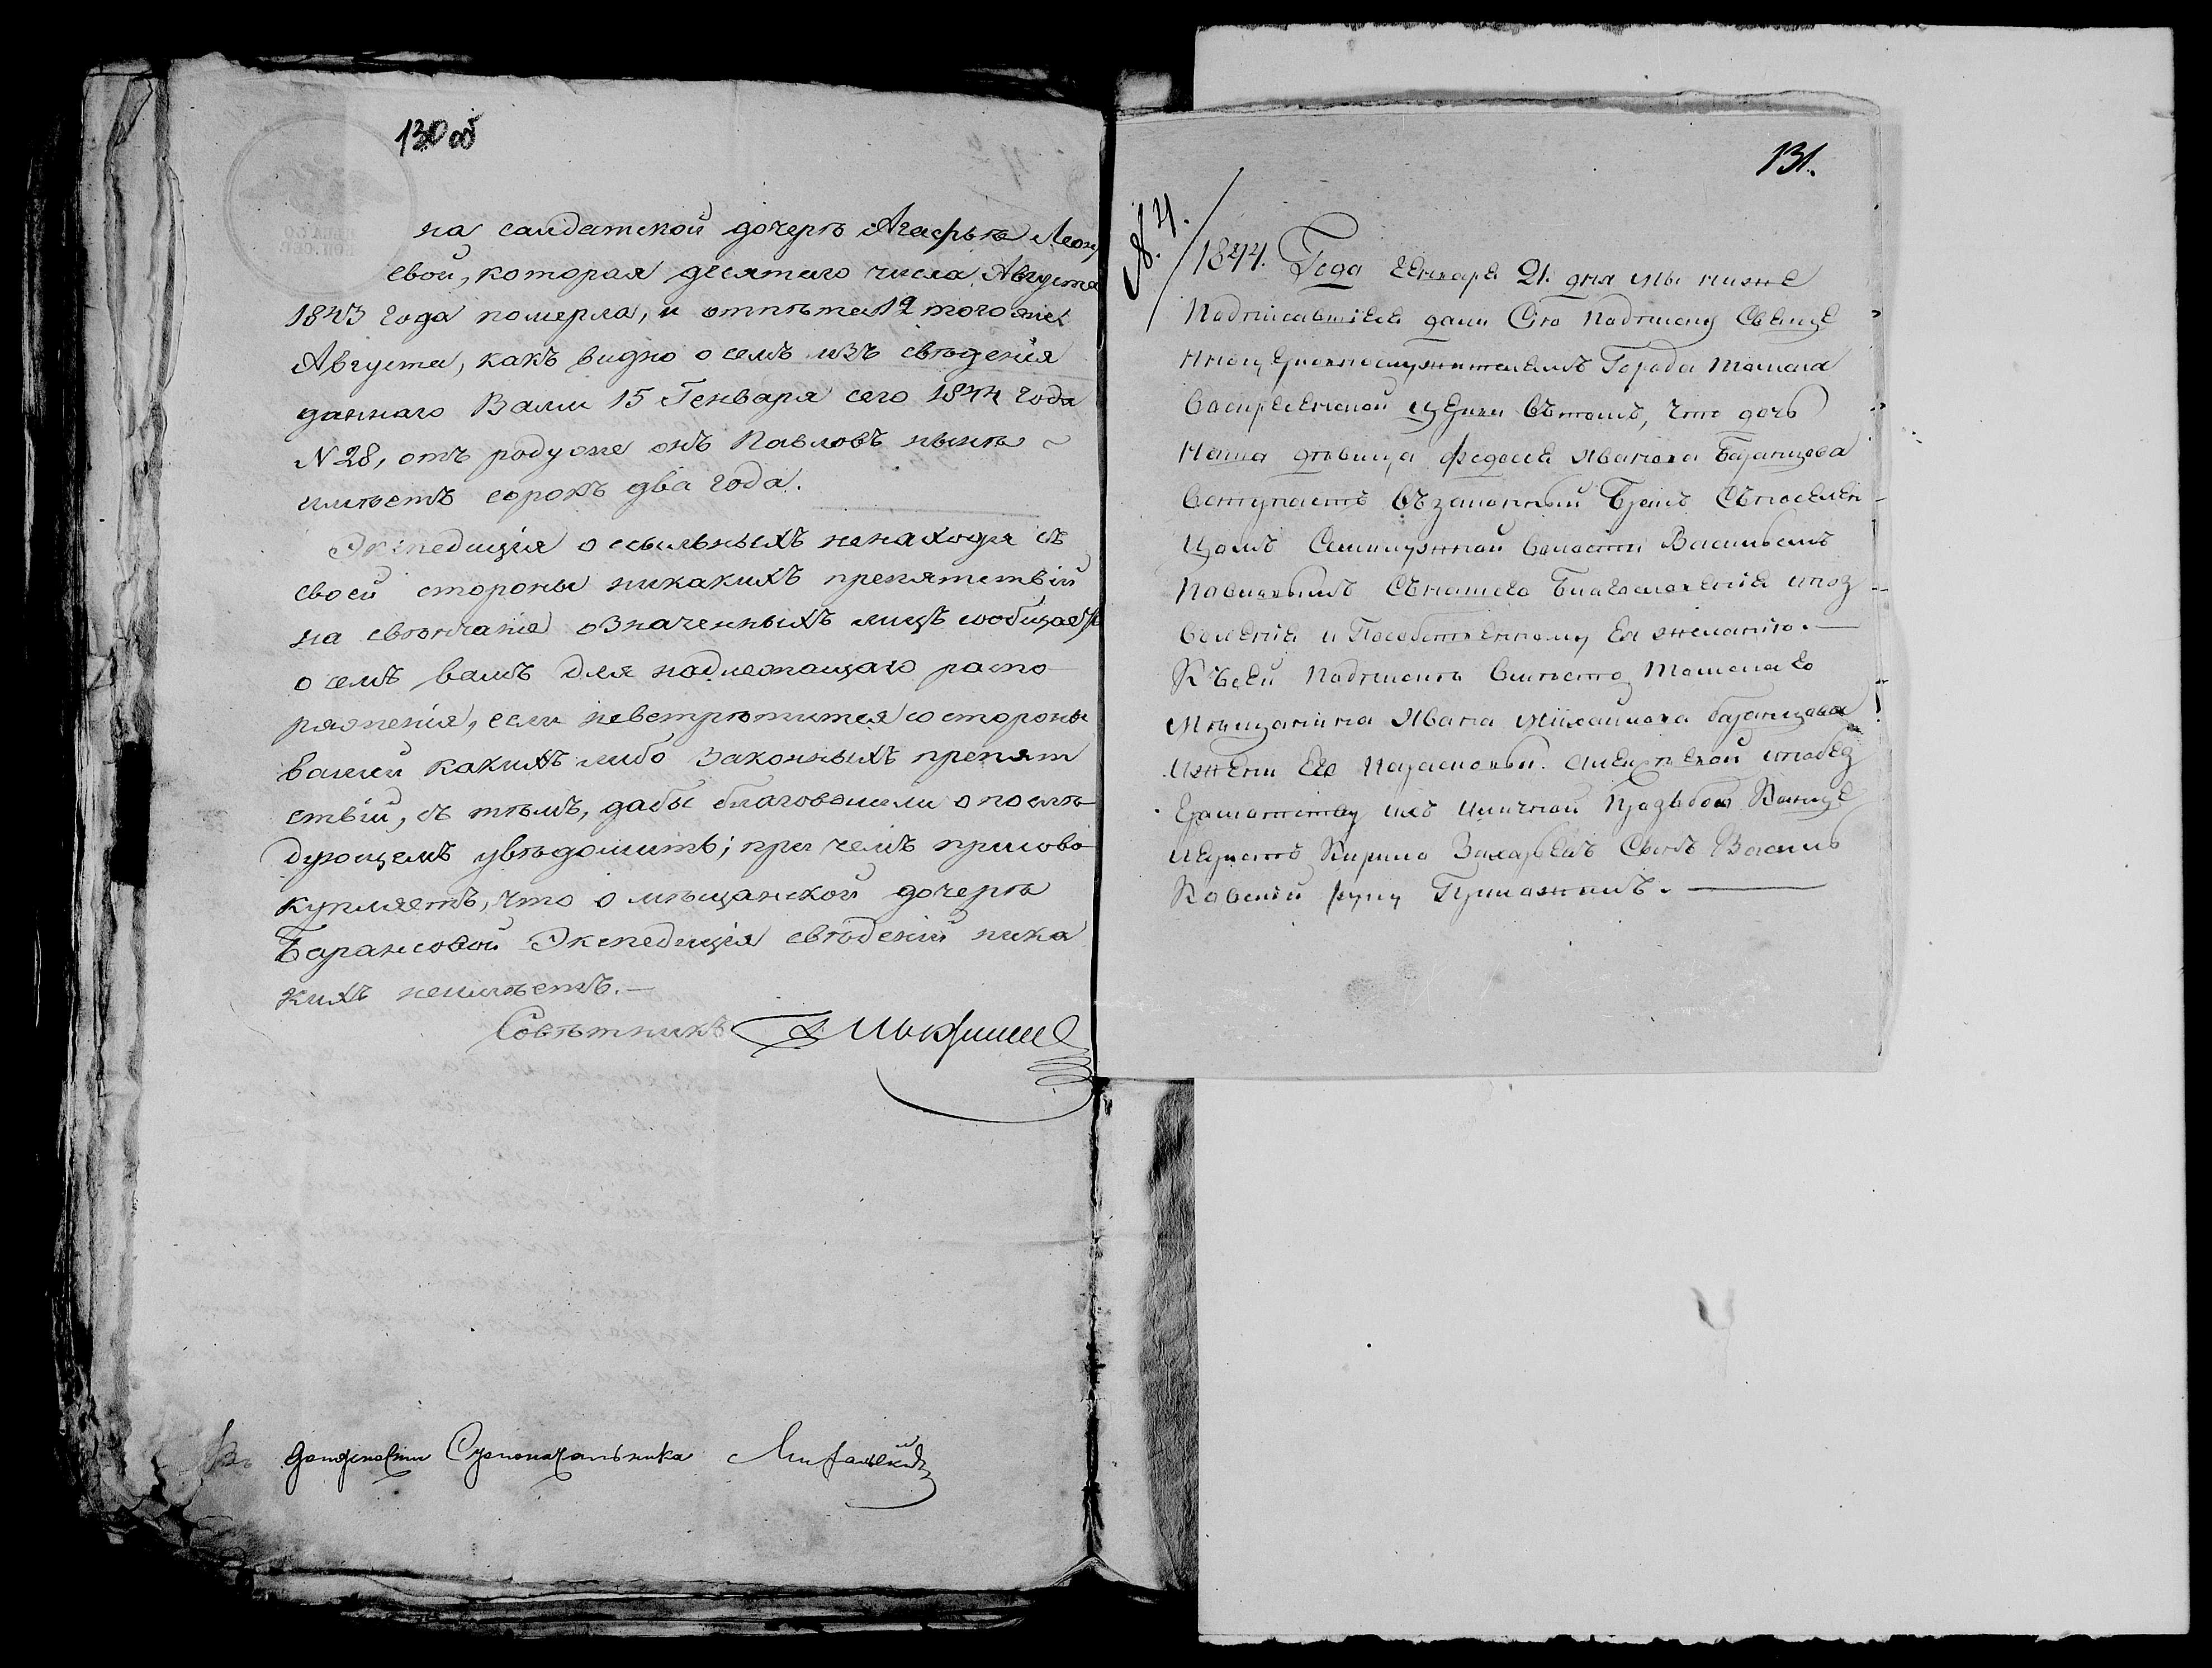 130 об
на салдатской дочерѣ Агафьѣ Леон
евой, которая десятаго числа Августа
1843 года померла, и отпѣта 12 того же
Августа, какъ видно о семъ изъ свѣденія
даннаго Вами 15 Генваря сего 1844 года
N 28, отъ роду же онъ Павловъ нынѣ
имѣетъ сорокъ два года.
Экспедиція о ссыльныхъ ненаходя съ
своей стороны никакихъ препятствій
на свѣнчаніе означенныхъ лицъ сообщаетъ
о семъ вамъ для надлежащаго распо
ряженія, если невстрѣтится со стороны
вашей какихъ либо законныхъ препят
ствій, съ тѣмъ, дабы благоволили о послѣ
дующемъ увѣдомить; при чемъ присово
купляетъ, что о мѣщанской дочерѣ
Барансовой Экспедиція свѣденій ника
кихъ неимѣетъ.—
Совѣтникъ
Въ должности Столоначальника
131.
N. 4.
1844. Года Генваря 21. дня мы ниже
Подписавшіеся дали Сію Подписку Свяще
нноцерковнослужителямъ Города Томска
Воскресенской церкви Вътомъ, что дочь
Наша дѣвица Федосья Иванова Баранцова
Вступаетъ Възаконный Бракъ Съпоселен
цомъ Семилужной Волости Васильемъ
Павловымъ Снашего Благословенія ипоз
воленія и Пособственному Ея желанію.—
Късей Подпискѣ Вместо Томскаго
Мѣщанина Ивана Михайлова баранцова
ижены Его Парасковьи. Алексѣевой иповез
Грамотству ихъ иличной Прозьбою Канце
ляристъ Кирило Захарьевъ Сынъ Василь
Ковский руку Приложилъ.—